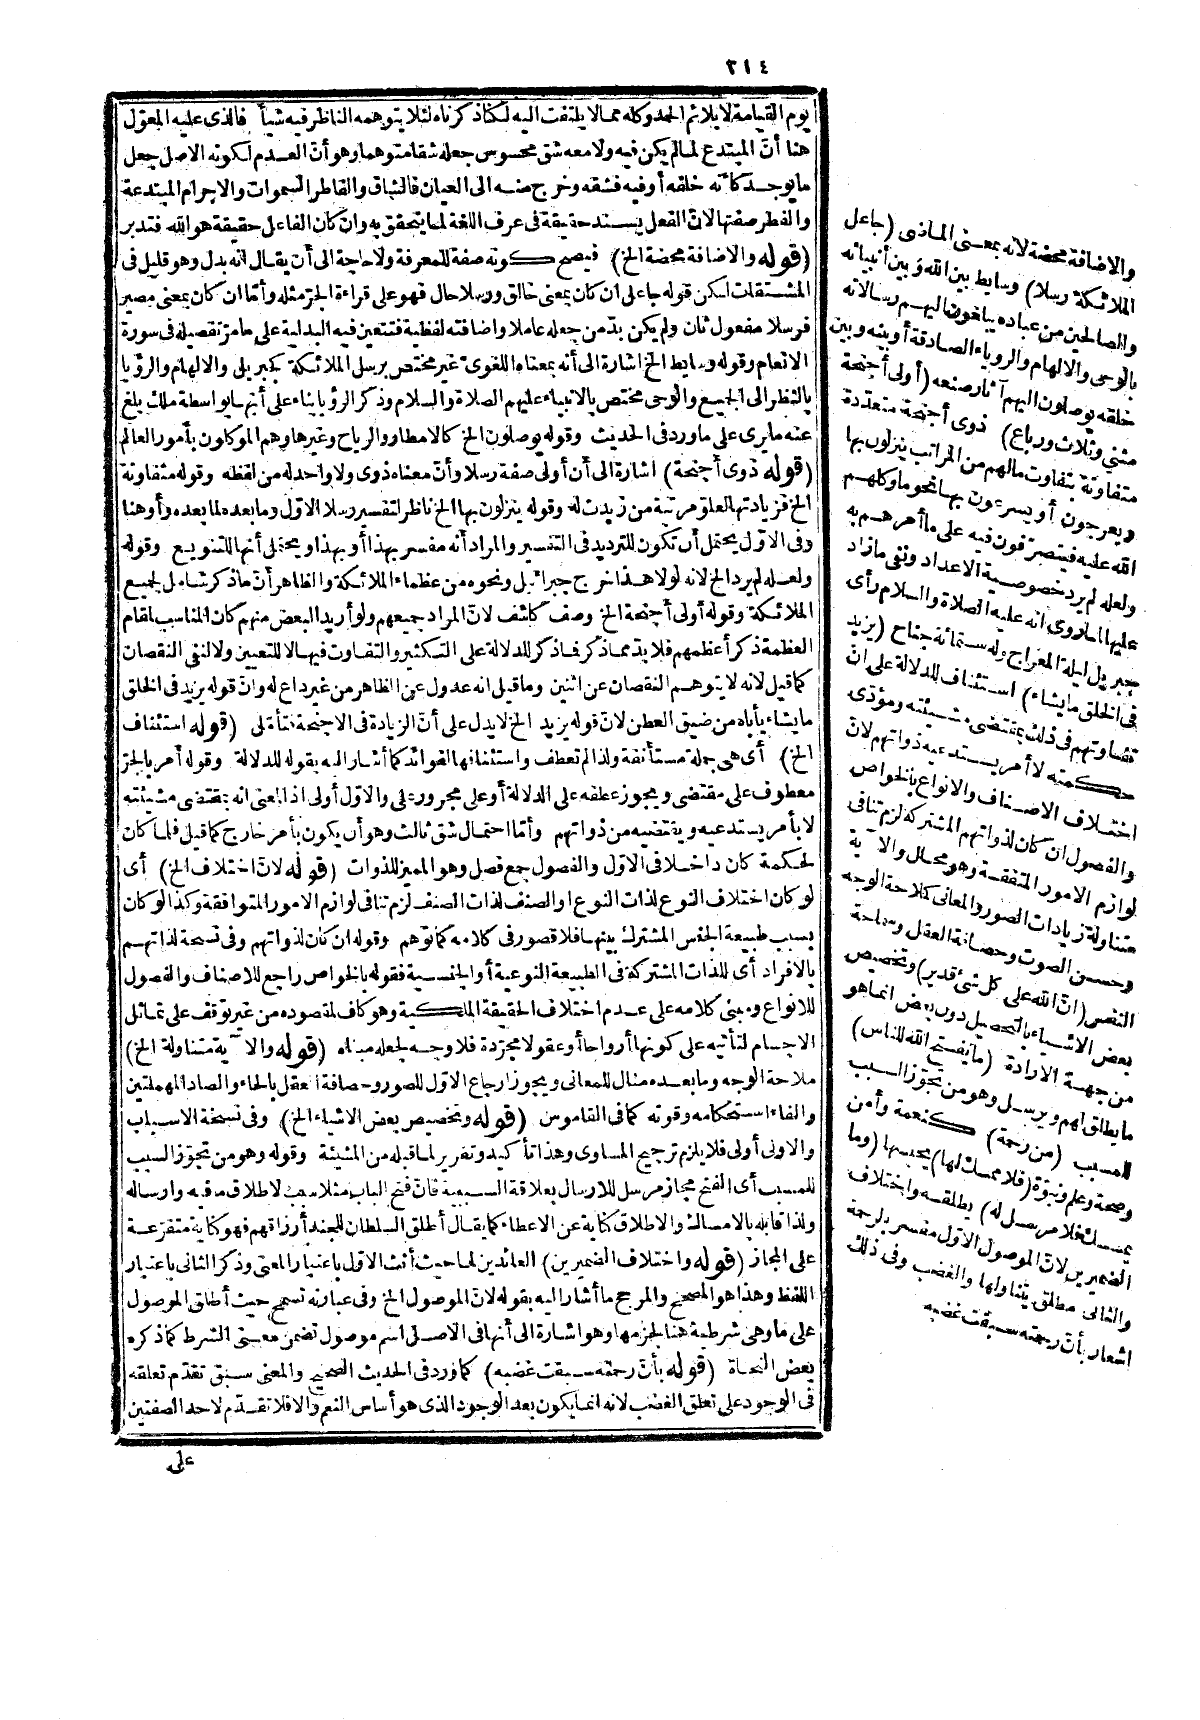 ٢١٤
يوم القيامة لا يلائم الحمد وكله مما لا يلتفت اليه لكنا ذكرناه لئلا يتوهمه الناظر فيه شيأ فالذى عليه المعوّل
هنا أنّ المبتدع لما لم يكن فيه ولا معه شق محسوس جعله شقا متوهما وهو أنّ العدم لكونه الاصل جعل
ما يوجد كأنه خلقه أو فيه فشقه وخرج منه الى العيان فالشاق والفاطر السموات والاجرام المبتدعة
والفطر صفتها لانّ الفعل يسند حقيقة فى عرف اللغة لما يتحقق به وان كان الفاعل حقيقة هو الله فتدبر
(قوله والاضافة محضة الخ) فيصح كونه صفة للمعرفة ولا حاجة الى أن يقال انه بدل وهو قليل فى
المشتقات لكن قوله جاعل ان كان بمعنى خالق ورسلا حال فهو على قراءة الجرّ مثله وأمّا ان كان بمعنى مصير
فرسلا مفعول ثان ولم يكن بدّ من جعله عاملا واضافته لفظية فتتعين فيه البدلية على ما مرّ تفصيله فى سورة
الانعام وقوله وسايط الخ اشارة الى أنه بمعناه اللغوى غير مختص برسل الملائكة كجبريل والالهام والرؤيا
بالنظر الى الجميع والوحى مختص بالانبياء عليهم الصلاة والسلام وذكر الرؤيا بناء على أنها بواسطة ملك يلغ
عنه ما يرى على ما ورد فى الحديث وقوله يوصلون الخ كالامطار والرياح وغيرها وهم الموكلون بأمور العالم
(قوله ذوى أجنحة) اشارة الى أن أولى صفة رسلا وأنّ معناه ذوى ولا واحد له من لفظه وقوله متفاوتة
الخ فزيادتها لعلو مرتبة من زيدت له وقوله ينزلون بها الخ ناظر لتفسير رسلا الاول وما بعده لما بعده وأو هنا
وفى الاوّل يحتمل أن تكون للترديد فى التفسير والمراد أنه مفسر بهذا أو بهذا ويحتمل أنها للتنويع وقوله
ولعله لم يرد الخ لانه لولا هذا خرج جبرائيل ونحوه من عظماء الملائكة والظاهر أنّ ما ذكر شامل لجميع
الملائكة وقوله أولى أجنحة الخ وصف كاشف لانّ المراد جميعهم ولو أريد البعض منهم كان المناسب لمقام
العظمة ذكر أعظمهم فلا بدّ مما ذكر فما ذكر للدلالة على التكثير والتفاوت فيها لا للتعيين ولا لنفى النقصان
كما قيل لانه لا يتوهم النقصان عن اثنين وما قيل انه عدول عن الظاهر من غير داع له وانّ قوله يزيد فى الخلق
ما يشاء يأباه من ضيق العطن لانّ قوله يزيد الخ لا يدل على أنّ الزيادة فى الاجنحة فتأمل (قوله استئناف
الخ) أى هى جملة مستأنفة ولذا لم تعطف واستئنافها لفوائد كما أشار اليه بقوله للدلالة وقوله أمر بالجرّ
معطوف على مقتضى ويجوز عطفه على الدلالة أو على مجرور على والاول أولى اذ المعنى انه بمقتضى مشيئته
لا بأمر يستدعيه ويقتضيه من ذواتهم وأمّا احتمال شق ثالث وهو أن يكون بأمر خارج كما قيل فلما كان
لحكمة كان داخلا فى الاول والفصول جمع فصل وهو المميز للذوات (قوله لانّ اختلاف الخ) أى
لو كان اختلاف النوع لذات النوع او الصنف لذات الصنف لزم تنافى لوازم الامور المتوافقة وكذا لو كان
بسبب طبيعة الجنس المشترك بينها فلا قصور فى كلامه كما توهم وقوله ان كان لذواتهم وفى نسخة لذاتهم
بالافراد أى للذات المشتركة فى الطبيعة النوعية أو الجنسية فقوله بالخواص راجع للاصناف والفصول
للانواع ومبنى كلامه على عدم اختلاف الحقيقة الملكية وهو كاف لمقصوده من غير توقف على تماثل
الاجسام لتأتيه على كونها أرواحا أو عقولا مجرّدة فلا وجه لجعله مبناه (قوله والآية متناولة الخ)
ملاحة الوجه وما بعده مثال للمعانى ويجوز ارجاع الاوّل للصور وحصافة العقل بالحاء والصاد المهملتين
والفاء استحكامه وقوته كما فى القاموس (قوله وتخصيص بعض الاشياء الخ) وفى نسخة الاسباب
والاولى أولى فلا يلزم ترجيح المساوى وهذا تأكيد وتقرير لما قبله من المشيئة وقوله وهو من تجوّز السبب
للمسبب أى الفتح مجاز مرسل للارسال بعلاقة السببية فانّ فتح الباب مثلا سبب لاطلاق ما فيه وارساله
ولذا قابله بالامساك والاطلاق كناية عن الاعطاء كما يقال أطلق السلطان للجند أرزاقهم فهو كناية متفرّعة
على المجاز (قوله واختلاف الضميرين) العائدين لما حيث أنث الاول باعتبار المعنى وذكر الثانى باعتبار
اللفظ وهذا هو المصحح والمرجح ما أشار اليه بقوله لانّ الموصول الخ وفى عبارته تسمح حيث أطلق الموصول
على ما وهى شرطية هنا لجزمها وهو اشارة الى أنها فى الاصل اسم موصول تضمن معنى الشرط كما ذكره
بعض النحاة (قوله بأنّ رحمته سبقت غضبه) كما ورد فى الحديث الصحيح والمعنى سبق تقدّم تعلقه
فى الوجود على تعلق الغضب لانه انما يكون بعد الوجود الذى هو أساس النعم والا فلا تقدّم لاحد الصفتين
على
والاضافة محضة لانه بمعنى الماضى (جاعل
الملائكة رسلا) وسايط بين الله وبين أنبيائه
والصالحين من عباده يبلغون اليهم رسالاته
بالوحى والالهام والروياء الصادقة أو بينه وبين
خلقه يوصلون اليهم آثار صنعه (أولى أجنحة
مثنى وثلاث ورباع) ذوى أجنحة متعدّدة
متفاوتة بتفاوت مالهم من المراتب ينزلون بها
ويعرجون أو يسرعون بها نحو ما وكلهم
الله عليه فيتصرّفون فيه على ما أمرهم به
ولعله لم يرد خصوصية الاعداد ونفى ما زاد
عليها لما روى انه عليه الصلاة والسلام رأى
جبريل ليلة المعراج وله ستمائة جناح (يزيد
فى الخلق ما يشاء) استئناف للدلالة على انّ
تفاوتهم فى ذلك بمقتضى مشيئته ومؤدّى
حكمته لا أمر يستدعيه ذواتهم لانّ
اختلاف الاصناف والانواع بالخواص
والفصول ان كان لذواتهم المشتركة لزم تنافى
لوازم الامور المتفقة وهو محال والآية
متناولة زيادات الصور والمعانى كملاحة الوجه
وحسن الصوت وحصافة العقل وسماحة
النفس (انّ الله على كل شئ قدير) وتخصيص
بعض الاشياء بالتحصيل دون بعض انما هو
من جهة الارادة (ما يفتح الله للناس)
ما يطلق لهم ويرسل وهو من تجوّز السبب
للمسبب (من رحمة) كنعمة وأمن
وصحة وعلم ونبوّة (فلا ممسك لها) يحبسها (وما
يمسك فلا مرسل له) يطلقه واختلاف
الضميرين لانّ الموصول الاوّل مفسر بالرحمة
والثانى مطلق يتناولها والغضب وفى ذلك
اشعار بأنّ رحمته سبقت غضبه